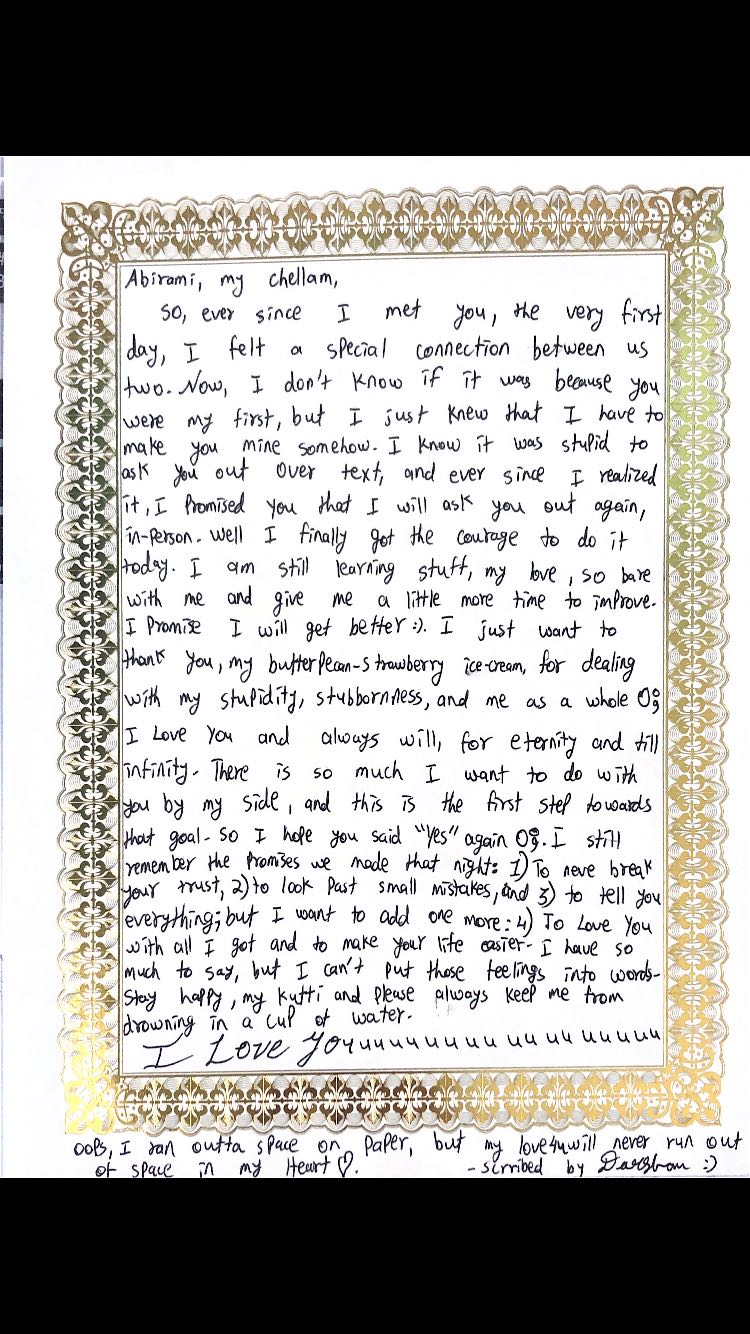 Abirami, my chellam,
So, ever since I met you, the very first
day, I felt a special connection between us
two. Now, I don't know if it was because you
were my first, but I just knew that I have to
make you mine somehow. I know it was stupid to
ask you out over text, and ever since I realized
it, I Promised you that I will ask you out again,
in-Person. Well I finally got the courage to do it
today. I am still learning stuff, my love, so bare
with me and give me a little more time to improve.
I Promise I will get better :). I just want to
thank you, my butterPecan-Strawberry ice-cream, for dealing
with my stupidity, stubbornness, and me as a whole
I Love You and always will, for eternity and till
infinity. There is so much I want to do with
you by my side, and this is the first step towards
that goal. So I hope you said "Yes" again. I still
remember the Promises we made that night: 1) To neve break
your trust, 2) to look Past small mistakes, and 3) to tell you
everything; but I want to add one more: 4) To Love You
with all I got and to make your life easier. I have so
much to say, but I can't Put those feelings into words.
Stay happy, my kutti and Please always keep me from
drowning in a cup of water.
I Love Youuuuuuuuu uu uu uuuuu
oops, I ran outta space on Paper, but my love4u will never run out
of space in my Heart ♡. - scrribed by Darshan :)